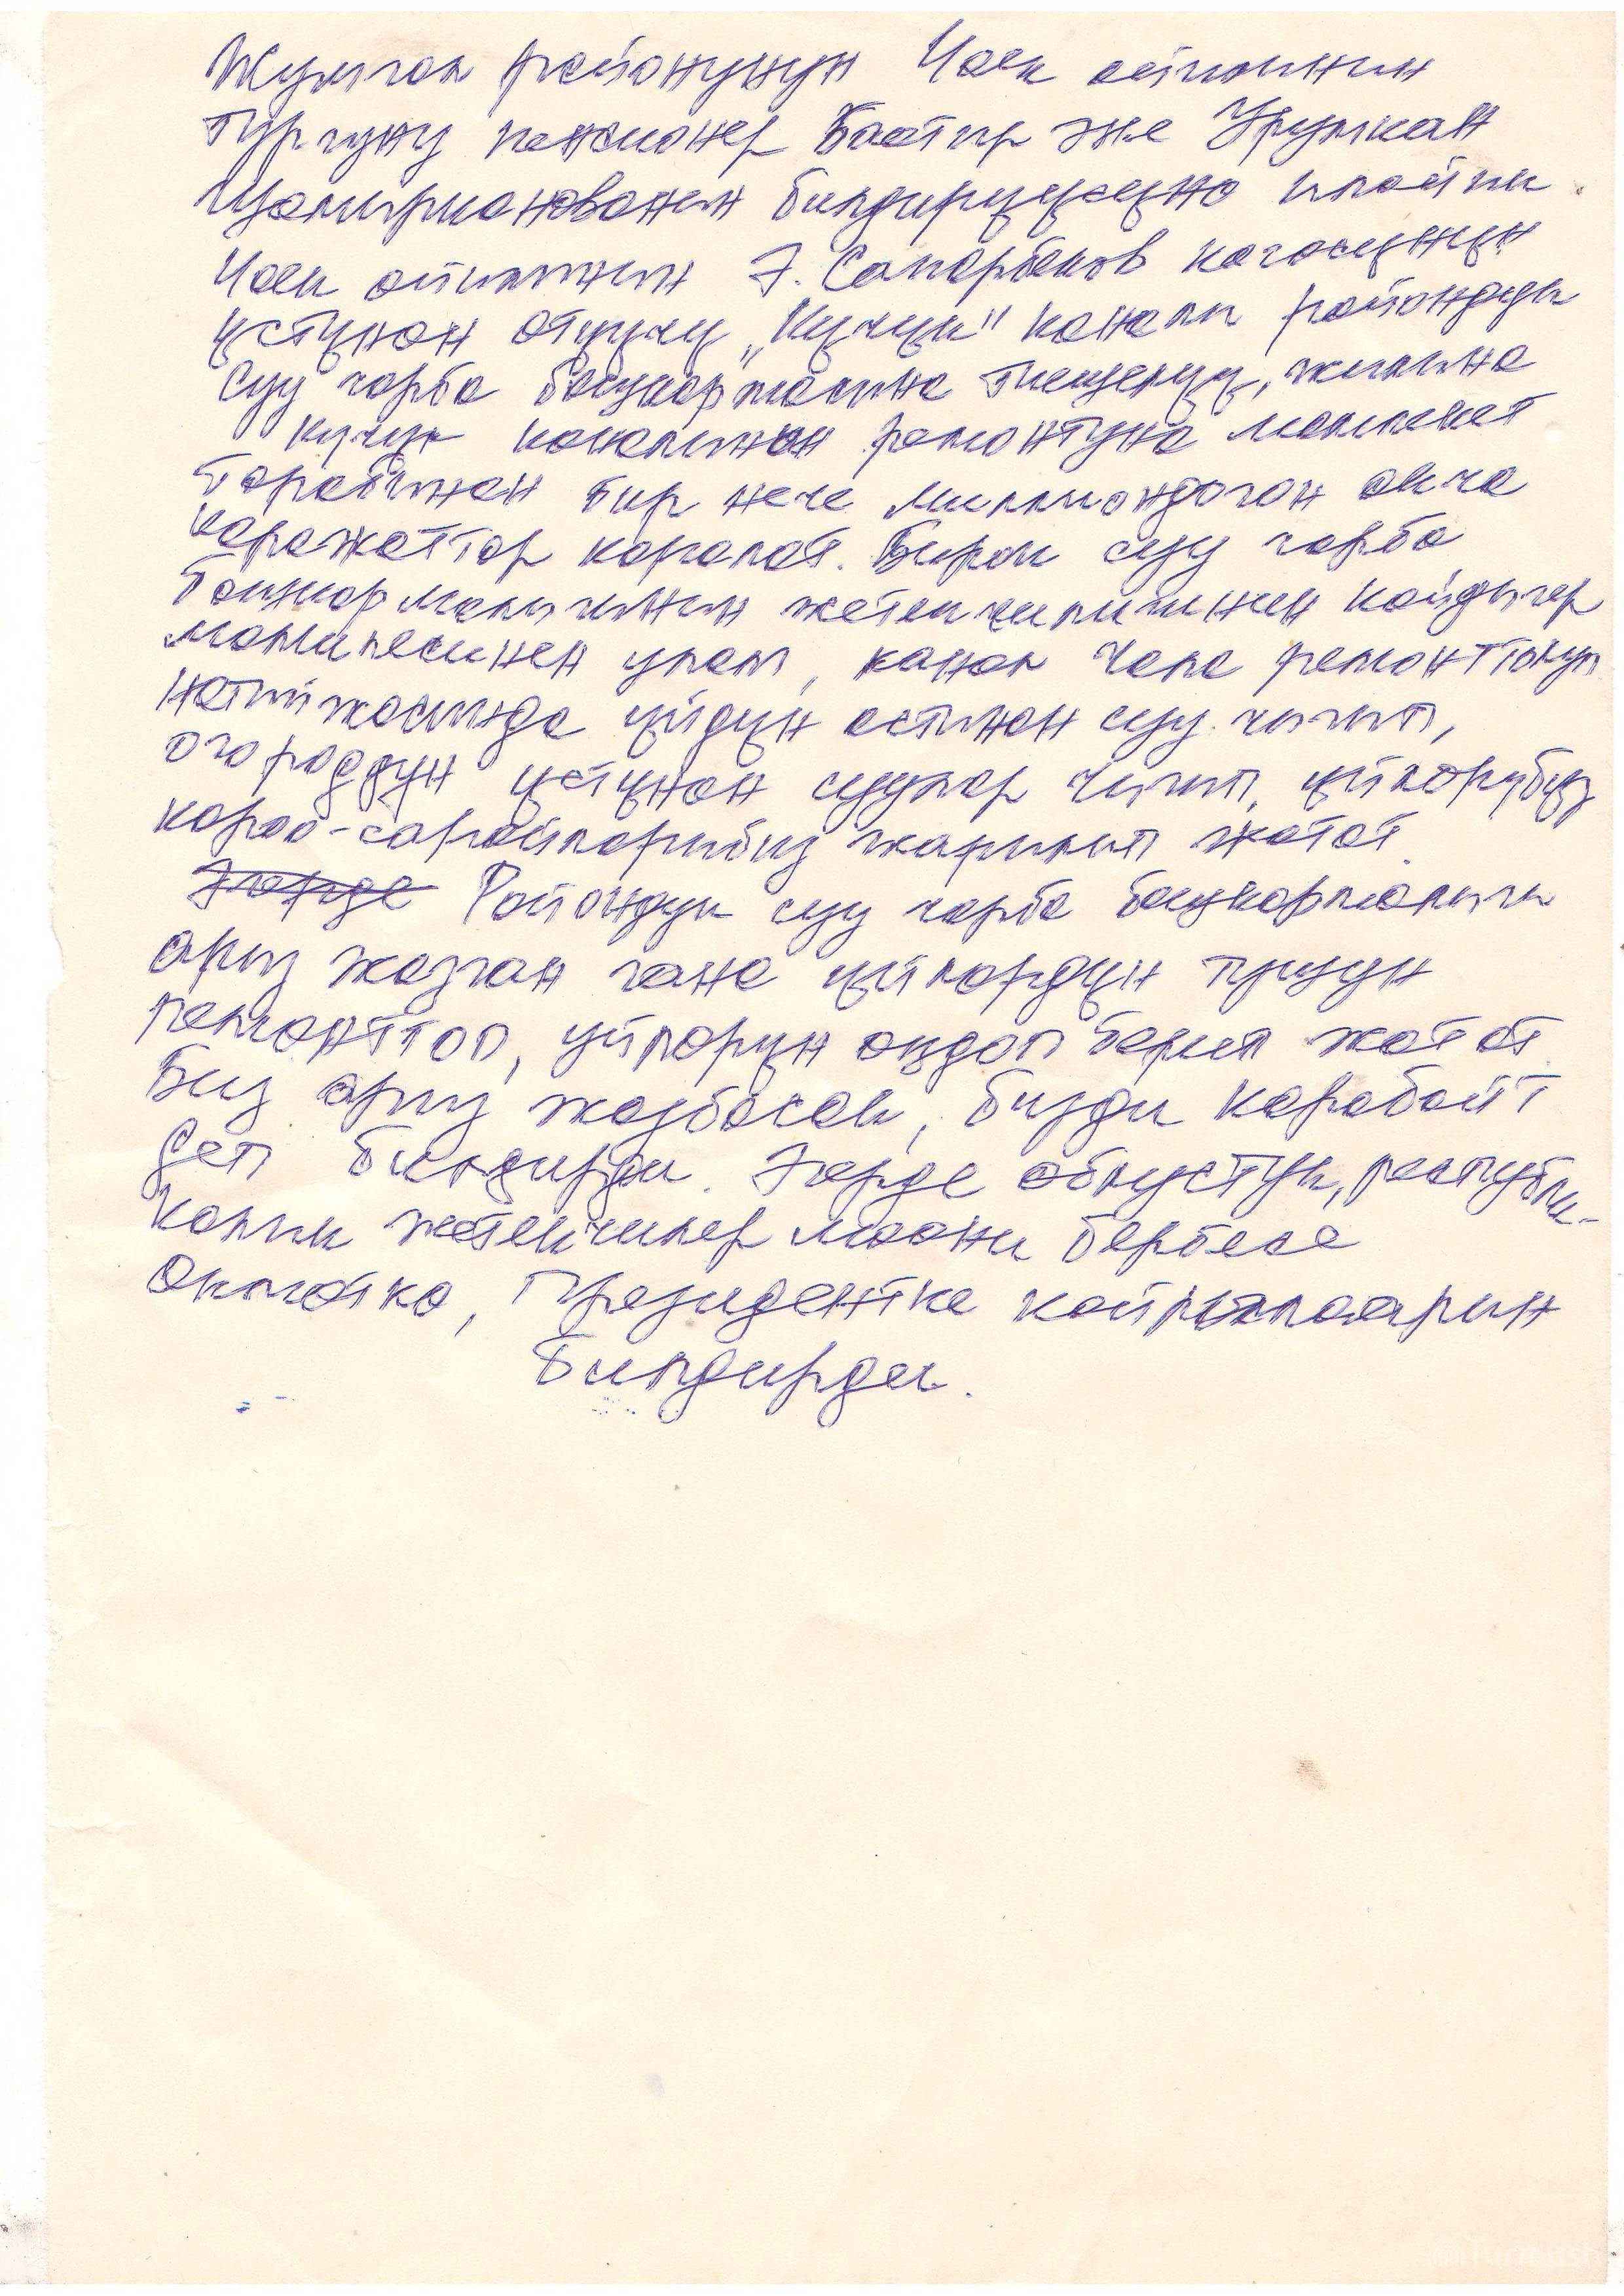 Жумгал районунун Чаек айылынын
тургуну пенсионер Баатыр эже Урумкан
билдирүүсүнө ылайык
Чаек айылынын Э. Сапарбеков көчөсүнүн
үстүнөн өтүүчү „Кучук" каналы райондук
суу чарба башкармалыгына тиешелүү, жылына
Кучук каналынын ремонтуна мамлекет
тарабынан бир нече миллиондогон акча
каражаттар каралат. Бирок суу чарба
башкармалыгынын жетекчилигинин кайдыгер
мамилесинен улам, канал чала ремонттолуп
натыйжасында үйдүн астынан суу чыгып,
огороддун үстүнөн суулар чыгып, үйлөрүбүз
короо-сарайларыбыз жарылып жатат.
Эгерде Райондук суу чарба башкармалыгы
арыз жазган гана үйлөрдүн тушун
ремонттоп, үйлөрүн оңдоп берип жатат
Биз арыз жазбасак, бизди карабайт
деп билдирди. Эгерде облустук, республи-
калык жетекчилер маани бербесе
Акматка, Президентке кайрылаарын
Билдирди.